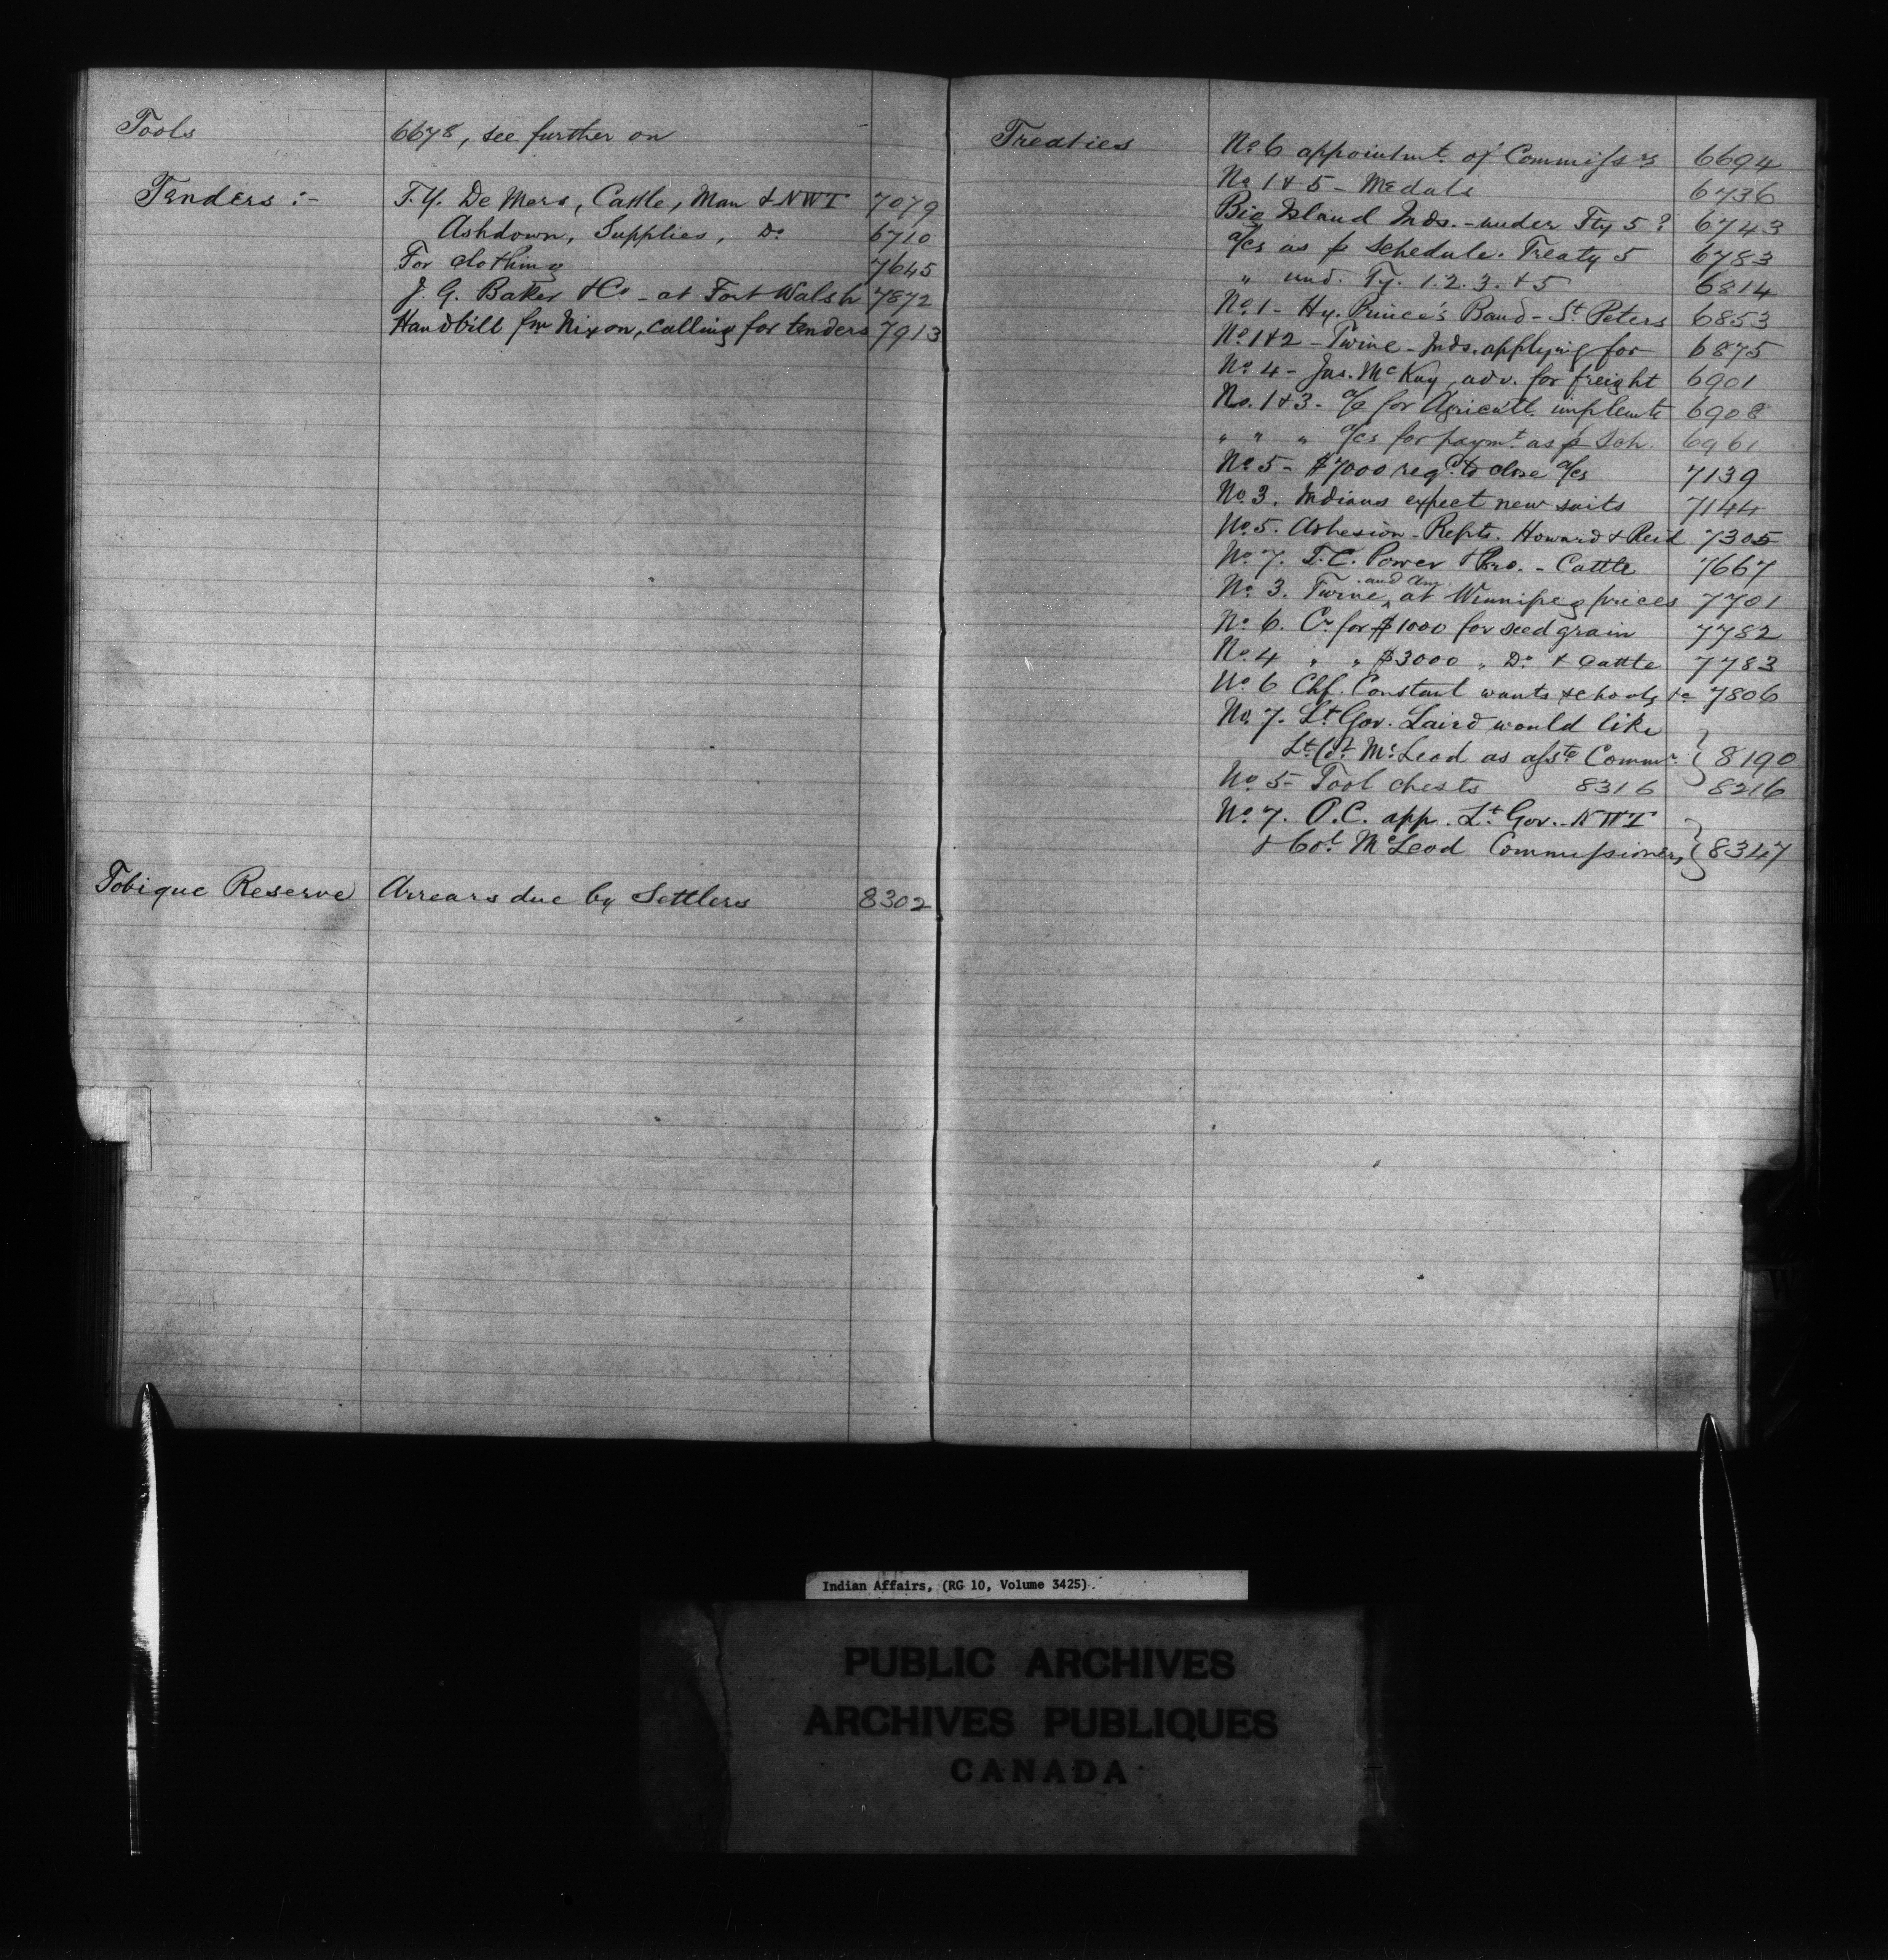 Tools 6678, see further on
Tenders :- T.Y. De Mers, Cattle, Man & NWT 7079
Ashdown, Supplies, Do 6710
For clothing 7645
J. G. Baker & Co - at Fort Walsh 7872
Handbill fm Nixon, calling for tenders 7913
Tobique Reserve Arrears due by Settlers 8302
Treaties No 6 appointmt. of Commissrs 6694
No 1 & 5 - Medals 6736
Big Island Inds. - under Ty 5? 6743
a/cs as p schedule. Treaty 5 6783
" und. Ty. 1.2.3. & 5 6814
No. 1 - Hy. Prince's Band - St. Peters 6853
No. 1 & 2 - Twine - Inds. applying for 6875
No. 4 - Jas. McKay, adv. for freight 6901
No. 1 & 3 - a/c for Agricultl. implemts 6908
" " " a/cs for paymt. as p Sch. 6961
No. 5 - $7000 reqd. to close a/cs 7139
No. 3. Indians expect new suits 7144
No. 5. Adhesion - Repts. Howard & Reid 7305
No. 7. T.C. Power & Bro. - Cattle 7667
No. 3. Twine and Am. at Winnipeg prices 7701
No. 6. Cr. for $1000 for seed grain 7782
No. 4 " " $3000 " Do. & Cattle 7783
No. 6 Chf. Constant wants schools &c 7806
No. 7. Lt. Gov. Laird would like
Lt. Col. McLeod as asste Commr. 8190
No. 5 - Tool chests 8316 8216
No. 7. O.C. app. Lt. Gov. NWT
& Col. McLeod Commissioners 8347
Indian Affairs, (RG 10, Volume 3425).
PUBLIC ARCHIVES
ARCHIVES PUBLIQUES
CANADA